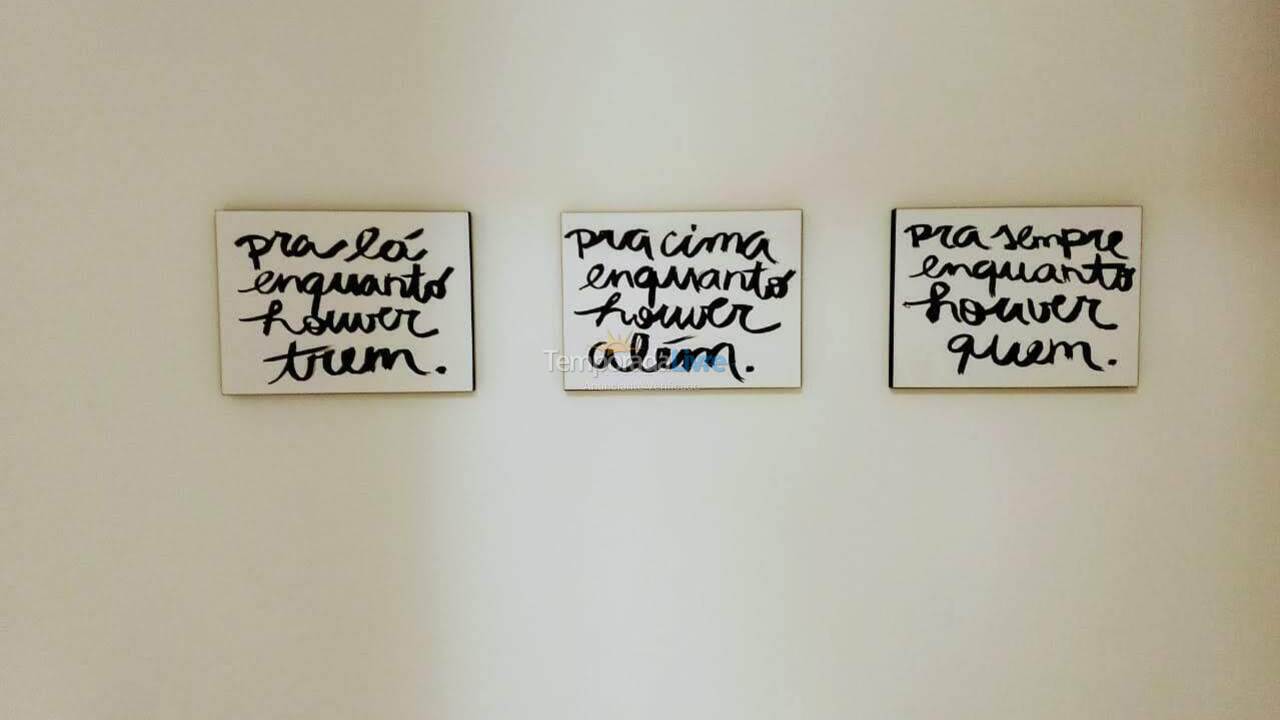 pra lá
enquanto
houver
trem.
pra cima
enquanto
houver
além.
pra sempre
enquanto
houver
quem.
TemporadaLivre
Anunciante verificado